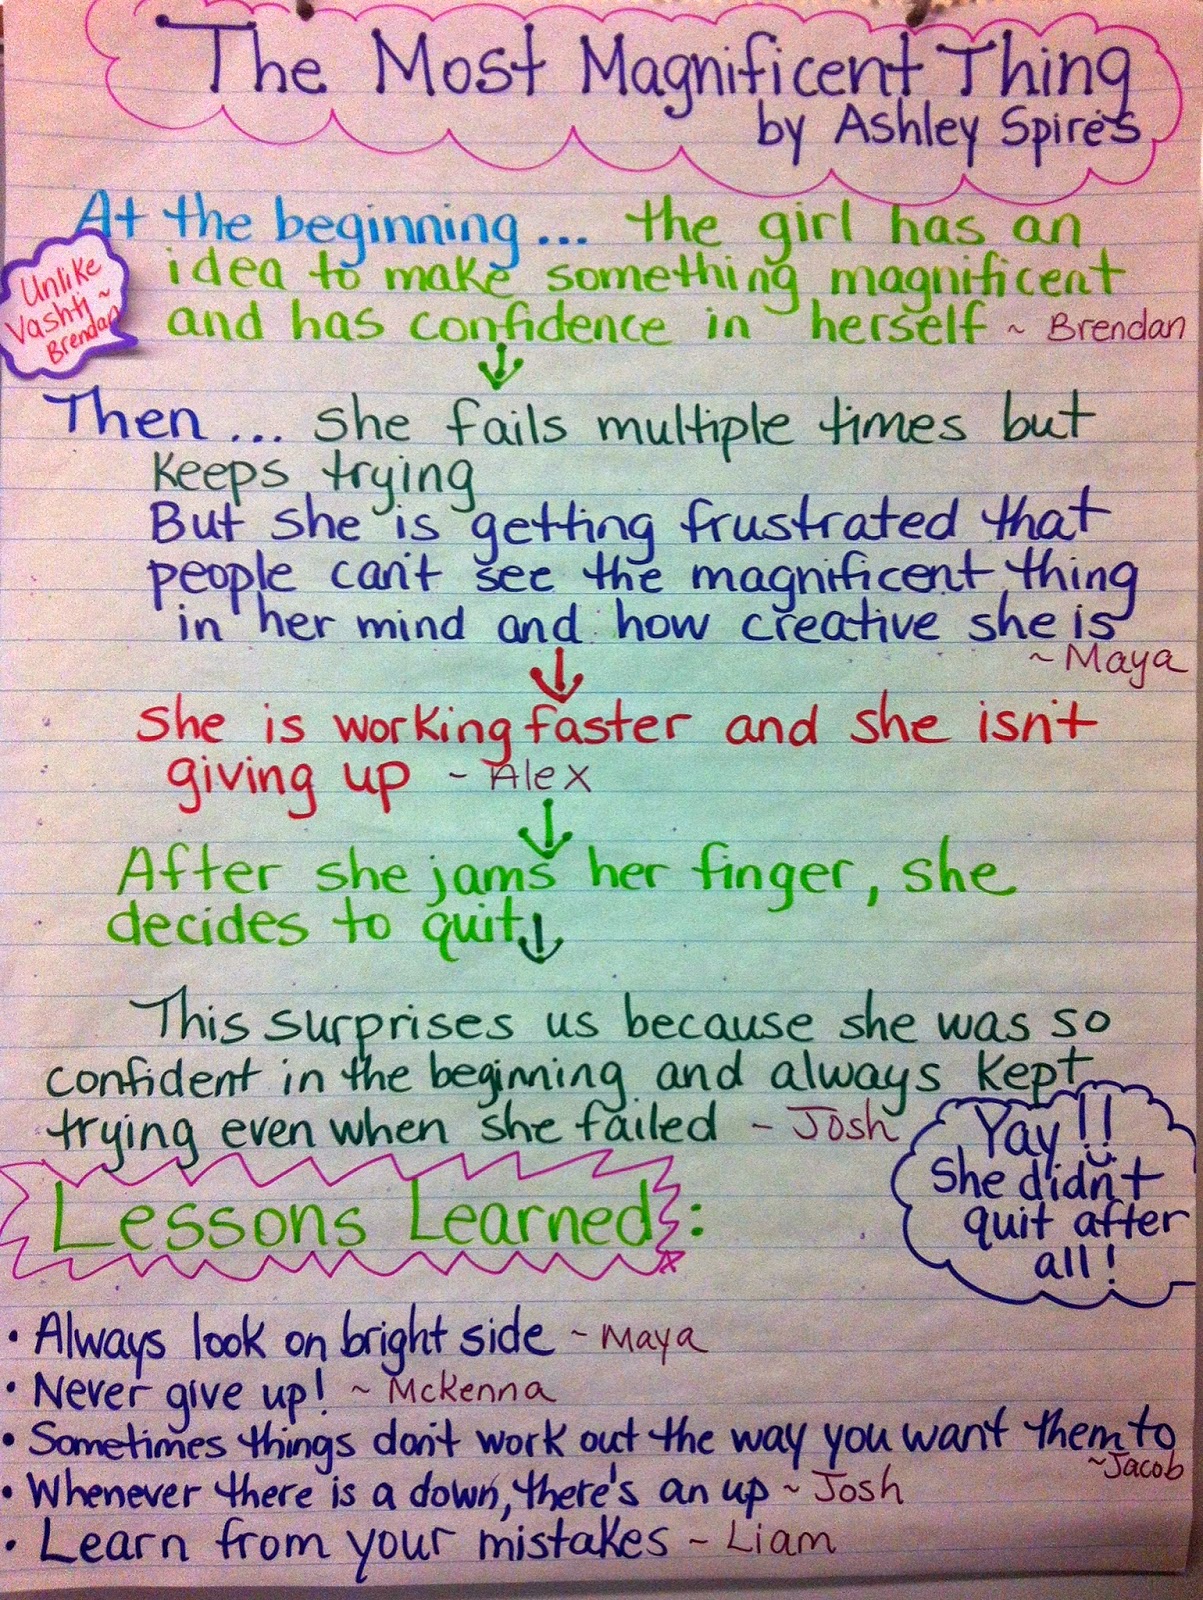 The Most Magnificent Thing
by Ashley Spires
At the beginning... the girl has an
idea to make something magnificent
and has confidence in herself ~ Brendan
Unlike
Vashti ~
Brendan
Then ... she fails multiple times but
keeps trying
But she is getting frustrated that
people can't see the magnificent thing
in her mind and how creative she is
~ Maya
She is working faster and she isn't
giving up ~ Alex
After she jams her finger, she
decides to quit
This surprises us because she was so
confident in the beginning and always kept
trying even when she failed ~ Josh
Yay!!
She didn't
quit after
all!
Lessons Learned:
• Always look on bright side ~ Maya
• Never give up! ~ McKenna
• Sometimes things don't work out the way you want them to
~Jacob
• Whenever there is a down, there's an up ~ Josh
• Learn from your mistakes ~ Liam